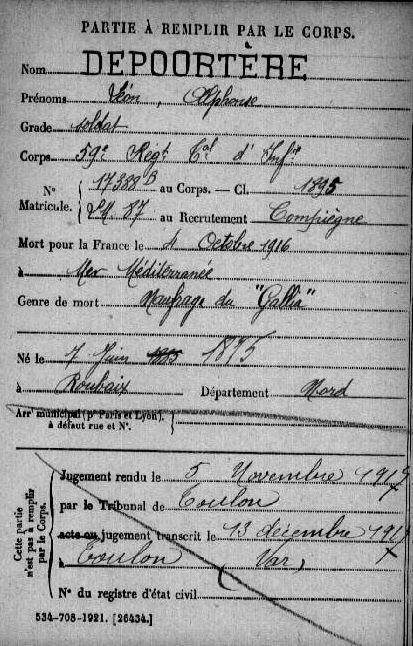 PARTIE À REMPLIR PAR LE CORPS.
Nom DEPOORTÈRE
Prénoms Léon, Alphonse
Grade soldat
Corps 59e Régt Cal d'Inftie
N° Matricule. 17388 B au Corps. — Cl. 1895
LM 87 au Recrutement Compiègne
Mort pour la France le 4 Octobre 1916
à Mer Méditerranée
Genre de mort Naufrage du "Gallia"
Né le 7 Juin 1875
à Roubaix Département Nord
Arrt municipal (pr Paris et Lyon),
à défaut rue et N°.
Cette partie n'est pas à remplir par le Corps.
Jugement rendu le 5 Novembre 1917
par le Tribunal de Toulon
acte ou jugement transcrit le 13 décembre 1917
à Toulon Var
N° du registre d'état civil
534-708-1921. [26434.]